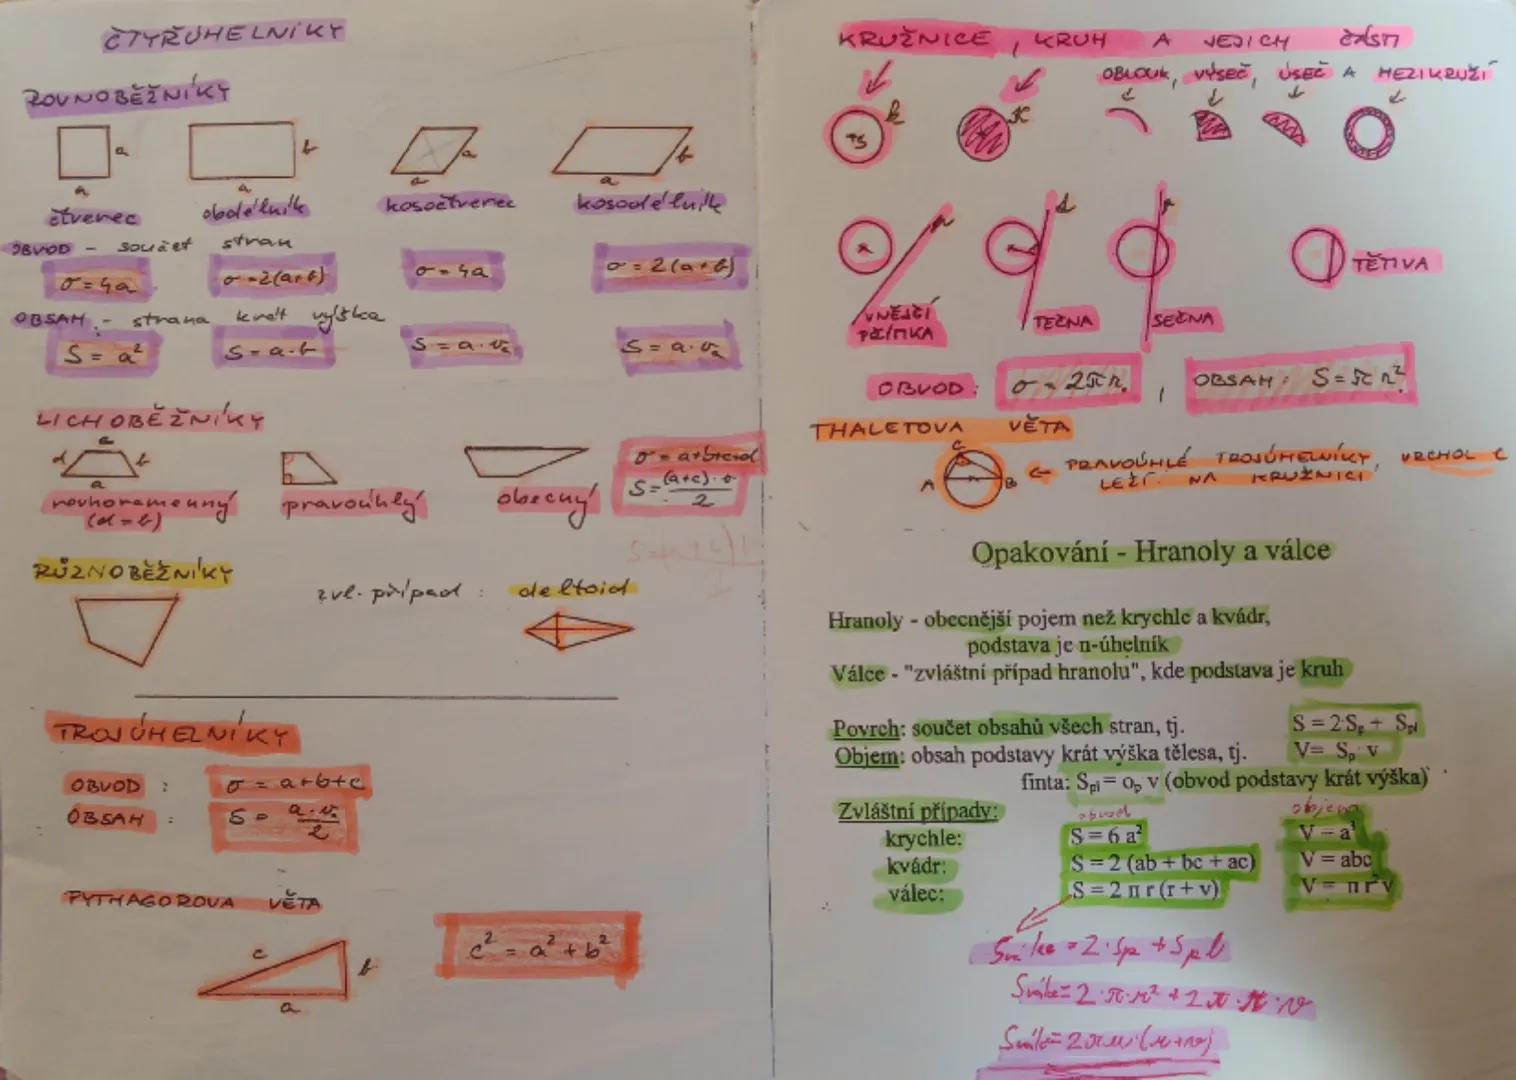 ČTYŘÚHELNÍKY
ROVNOBĚŽNÍKY
a
a
b
a
a
a
b
a
čtverec
obdélník
kosočtverec
kosodélník
OBVOD - součet stran
σ = 4a
σ = 2(a+b)
σ = 4a
σ = 2(a+b)
OBSAH - strana krát výška
S = a²
S = a·b
S = a·vₐ
S = a·vₐ
LICHOBĚŽNÍKY
c
d
b
a
rovnoramenný
(d = b)
pravoúhlý
obecný
σ = a+b+c+d
S = (a+c)·v / 2
RŮZNOBĚŽNÍKY
zvl. případ : deltoid
TROJÚHELNÍKY
OBVOD : σ = a+b+c
OBSAH : S = a·vₐ / 2
PYTHAGOROVA VĚTA
c
b
a
c² = a² + b²
KRUŽNICE, KRUH A JEJICH ČÁSTI
OBLOUK, VÝSEČ, ÚSEČ A MEZIKRUŽÍ
k
S
K
VNĚJŠÍ
PŘÍMKA
TEČNA
SEČNA
TĚTIVA
OBVOD : σ = 2πr , OBSAH : S = πr²
THALETOVA VĚTA
C
A
B
PRAVOÚHLÉ TROJÚHELNÍKY, VRCHOL C
LEŽÍ NA KRUŽNICI
Opakování - Hranoly a válce
Hranoly - obecnější pojem než krychle a kvádr,
podstava je n-úhelník
Válce - "zvláštní případ hranolu", kde podstava je kruh
Povrch: součet obsahů všech stran, tj. S = 2·Sₚ + Sₚₗ
Objem: obsah podstavy krát výška tělesa, tj. V= Sₚ · v
finta: Sₚₗ = oₚ v (obvod podstavy krát výška)
Zvláštní případy:
obvod
objem
krychle: S = 6 a² V = a³
kvádr: S = 2 (ab + bc + ac) V = abc
válec: S = 2 π r (r + v) V = π r² v
= 2·Sp + Spl
= 2·π·r² + 2π·r·v
= 2πr·(r+v)